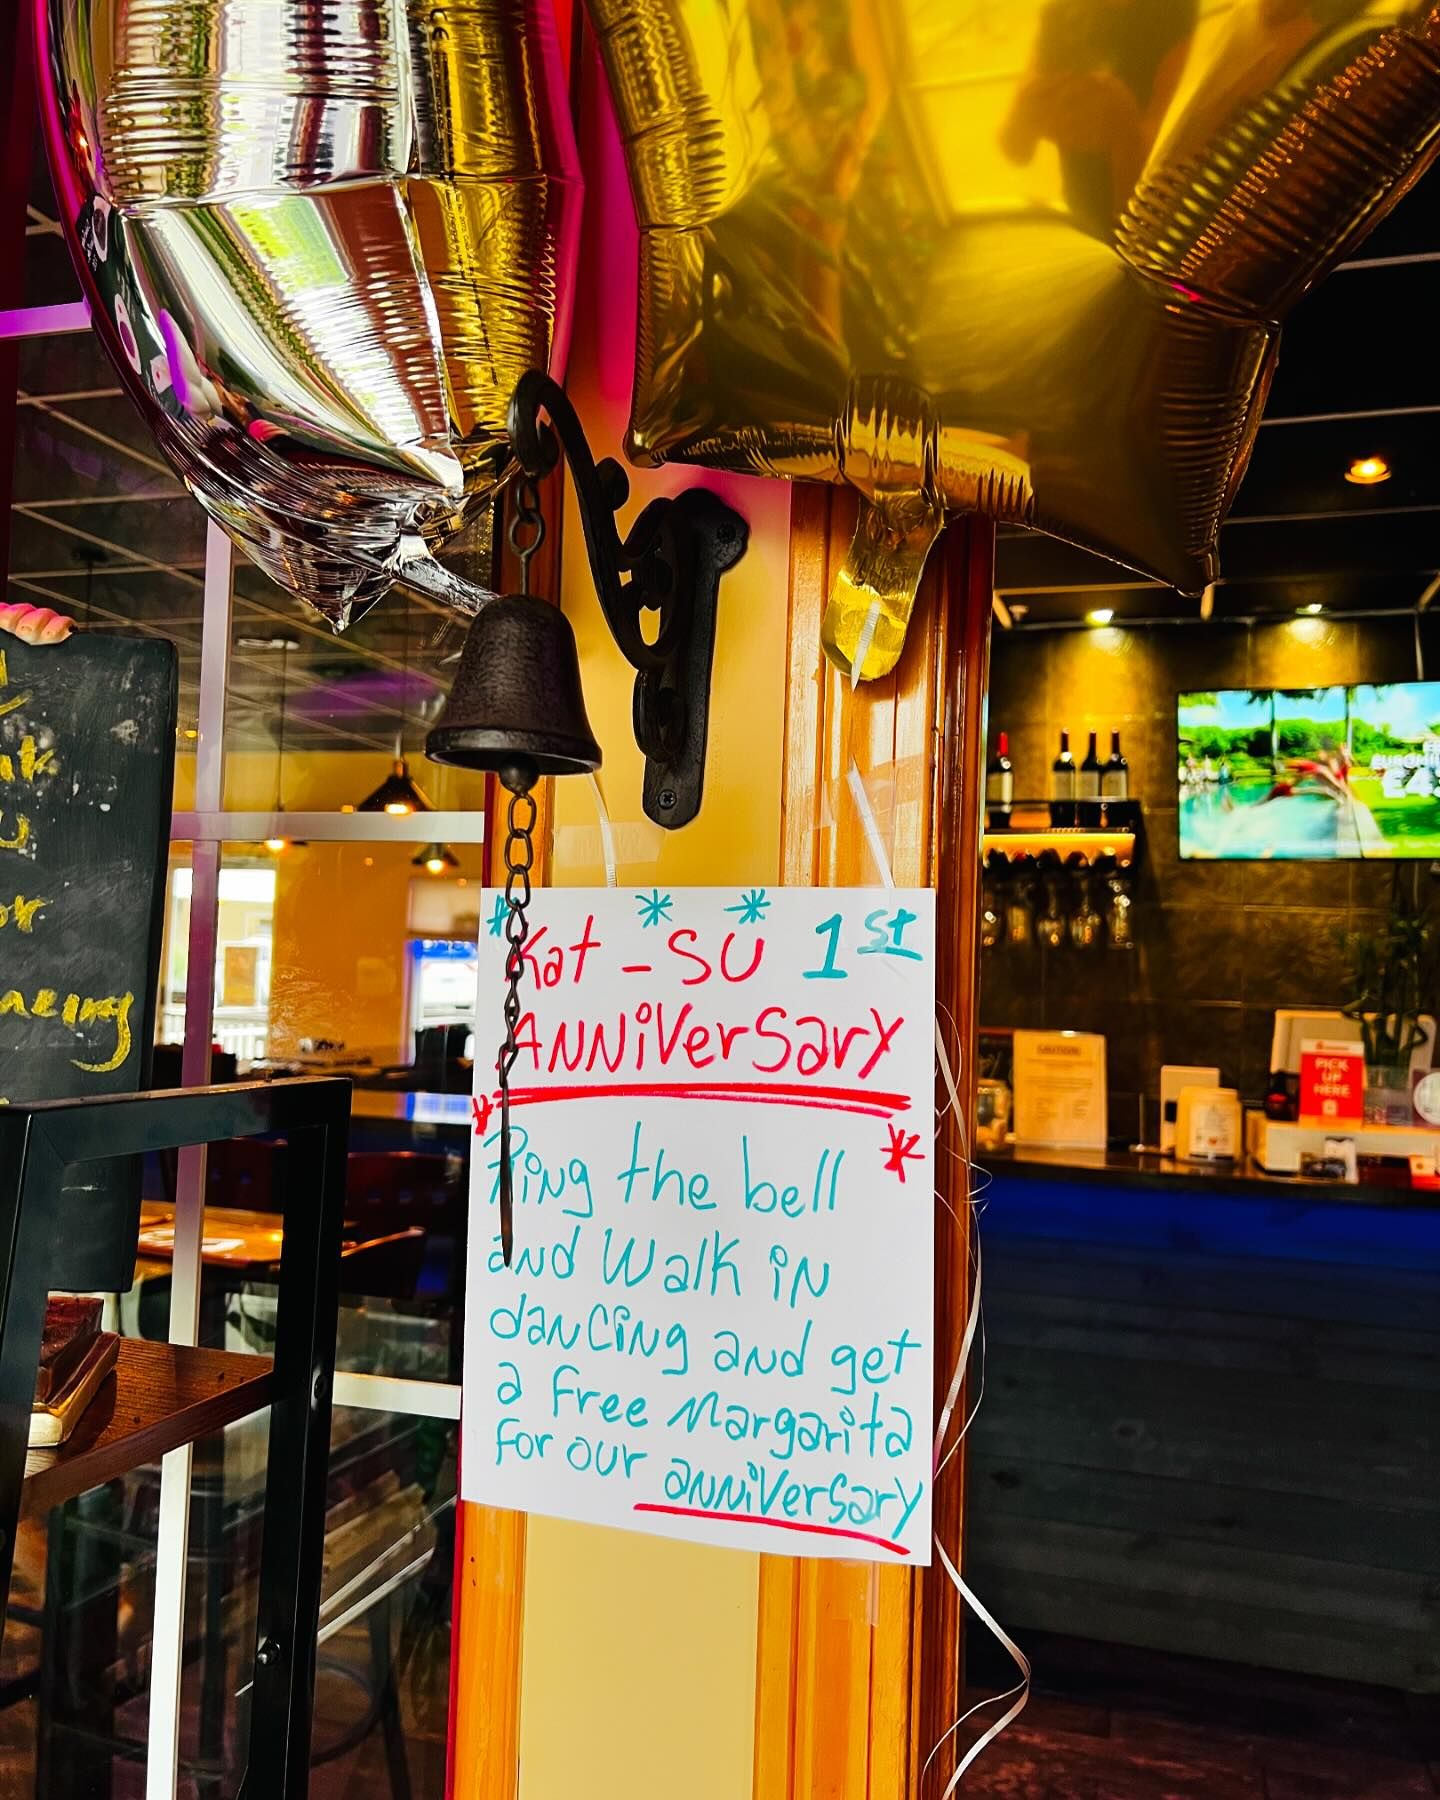 Kat-SU 1st
ANNiVerSary
Ring the bell
and Walk in
dancing and get
a free Margarita
for our anniversary
PICK
UP
HERE